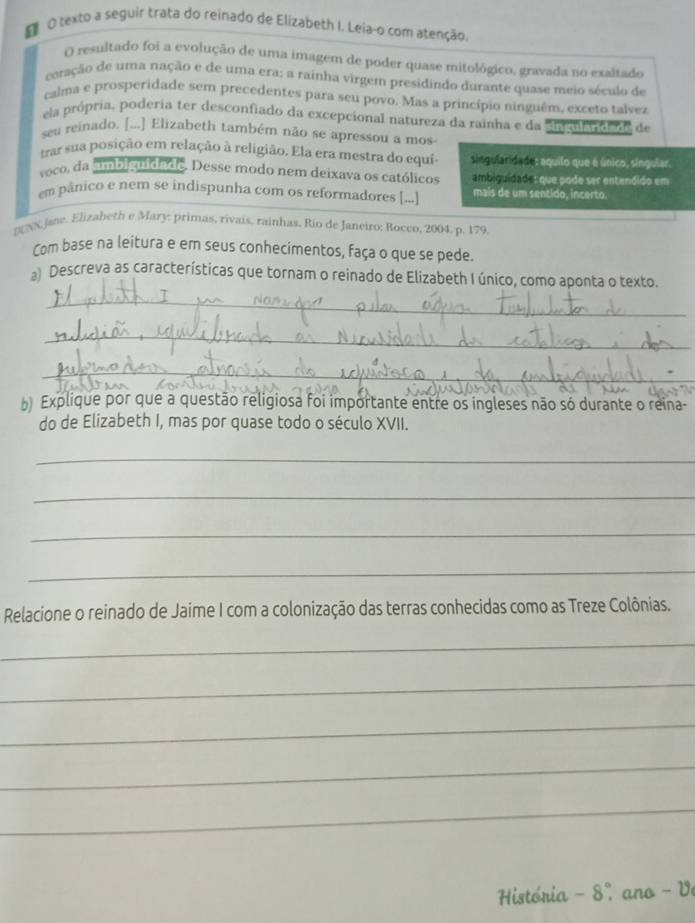 1 O texto a seguir trata do reinado de Elizabeth I. Leia-o com atenção.
O resultado foi a evolução de uma imagem de poder quase mitológico, gravada no exaltado
coração de uma nação e de uma era: a rainha virgem presidindo durante quase meio século de
calma e prosperidade sem precedentes para seu povo. Mas a princípio ninguém, exceto talvez
ela própria, poderia ter desconfiado da excepcional natureza da rainha e da singularidade de
seu reinado. [...] Elizabeth também não se apressou a mos-
trar sua posição em relação à religião. Ela era mestra do equí-
voco, da ambiguidade. Desse modo nem deixava os católicos
em pânico e nem se indispunha com os reformadores [...]
singularidade: aquilo que é único, singular.
ambiguidade: que pode ser entendido em
mais de um sentido, incerto.
DUNN, Jane. Elizabeth e Mary: primas, rivais, rainhas. Rio de Janeiro: Rocco, 2004. p. 179.
Com base na leitura e em seus conhecimentos, faça o que se pede.
a) Descreva as características que tornam o reinado de Elizabeth I único, como aponta o texto.
Elizabeth I navegou pelas águas turbulentas da
religião, equilibrando as necessidades dos católicos e dos
reformadores através do equívoco e da ambiguidade.
também contribuem para a singularidade de seu
b) Explique por que a questão religiosa foi importante entre os ingleses não só durante o reina-
do de Elizabeth I, mas por quase todo o século XVII.
Relacione o reinado de Jaime I com a colonização das terras conhecidas como as Treze Colônias.
História - 8º. ano -